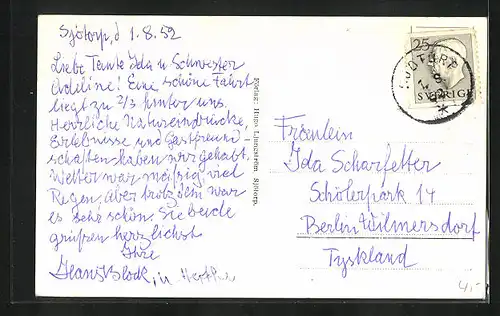 Sjötorp, d 1.8.52
Liebe Tante Ida u Schwester
Adeline! Eine schöne Fahrt
liegt zu 2/3 hinter uns.
Herrliche Natureindrücke,
Erlebnisse und Gastfreund-
schaften haben wir gehabt.
Wetter war mäßig, viel
Regen, aber trotzdem war
es sehr schön. Sie beide
grüßen herzlichst
Ihre
Hans Block, u
Förlag: Hugo Ljungström, Sjötorp.
25
SVERIGE
Fräulein
Ida Scharfetter
Schölerpark 14
Berlin Wilmersdorf
Tyskland
4,-